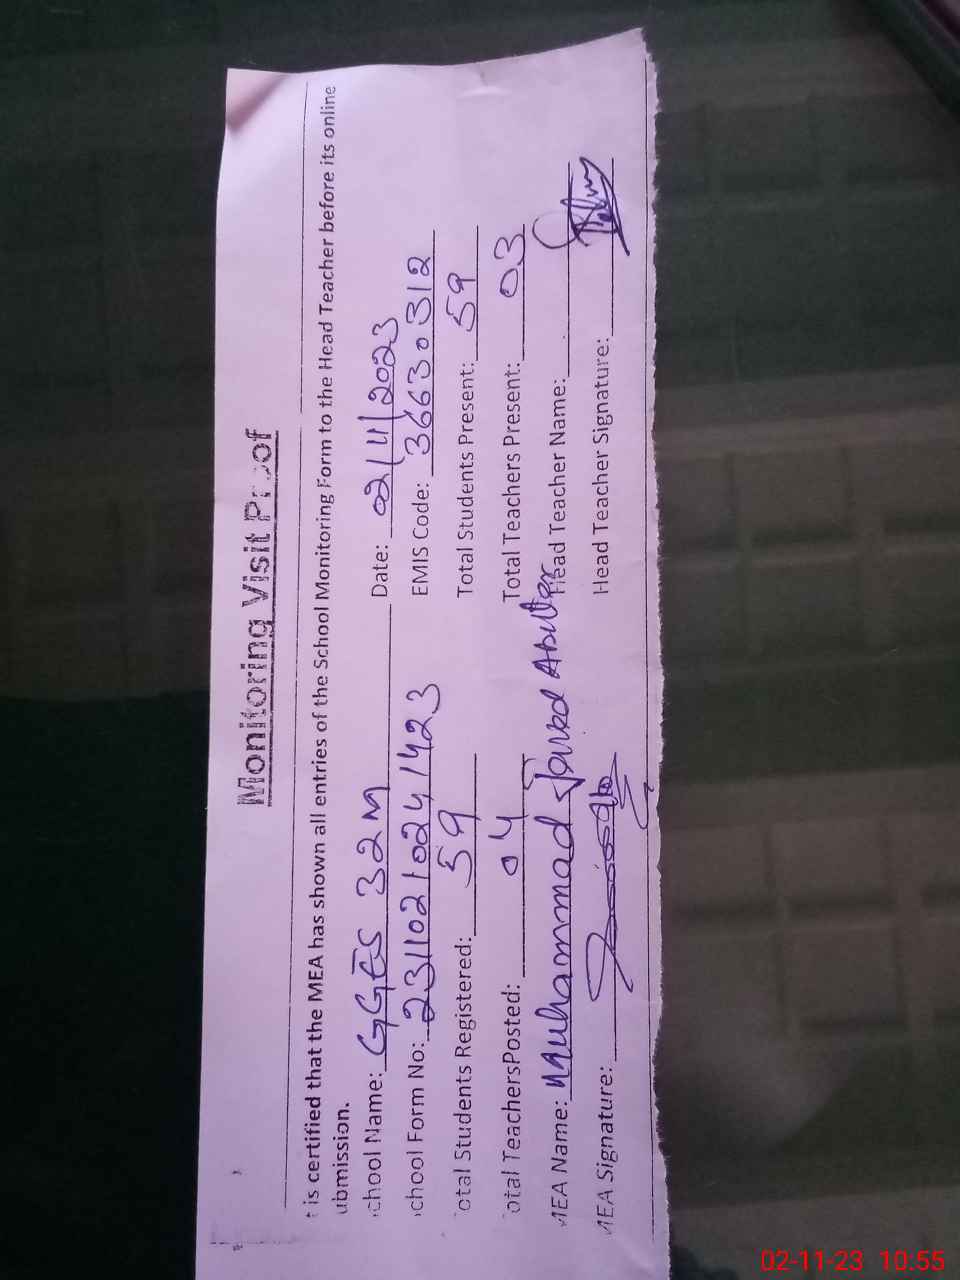 Monitoring Visit Proof
t is certified that the MEA has shown all entries of the School Monitoring Form to the Head Teacher before its online
ubmission.
chool Name: GGES 32 M Date: 02/11/2023
chool Form No: 231102 1024 1423 EMIS Code: 36630312
otal Students Registered: 59 Total Students Present: 59
otal TeachersPosted: 04 Total Teachers Present: 03
MEA Name: Muhammad Javed Head Teacher Name:
MEA Signature: Head Teacher Signature:
02-11-23 10:55